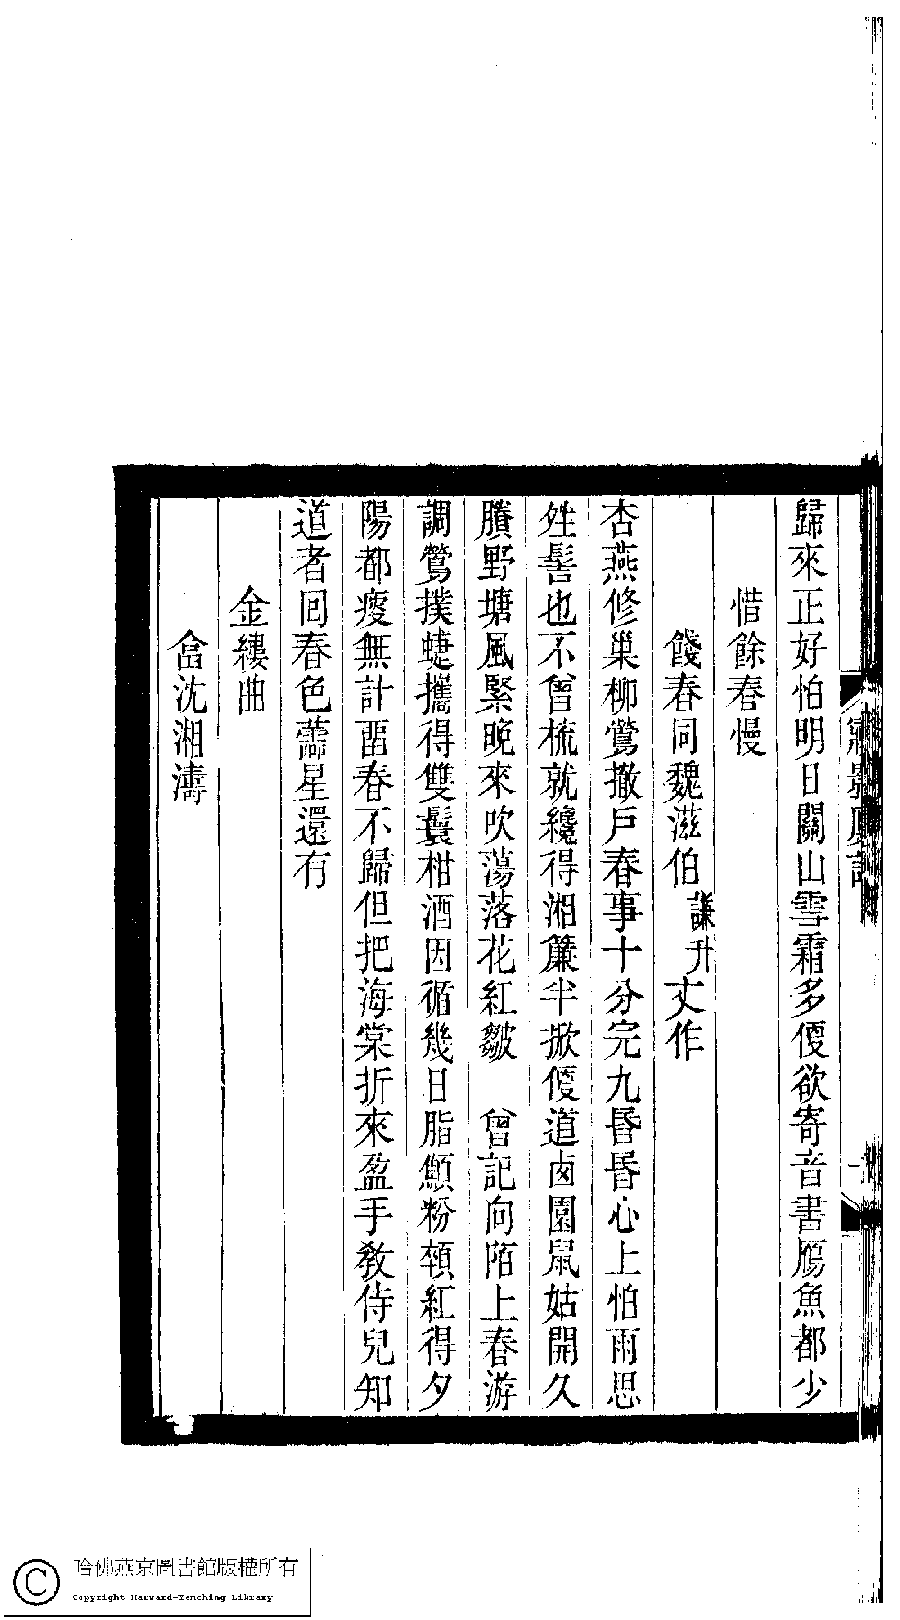 歸來正好怕明日關山雪霜多偄欲寄音書鴈魚都少
惜餘春慢
餞春同魏滋伯謙升丈作
杏燕修巢柳鶯撤戶春事十分完九昬昬心上怕雨思
姓髻也不曾梳就纔得湘簾半掀偄道卤園鼠姑開久
賸野塘風緊晚來吹蕩落花紅皺　曾記向陌上春游
調鶯撲蜨攜得雙鬟柑酒因循幾日脂顦粉頓紅得夕
陽都瘦無計畱春不歸但把海棠折來盈手敎侍兒知
道者囘春色蘦星還有
金縷曲
畣沈湘濤
哈佛燕京圖書館版權所有
Copyright Harvard-Yenching Library